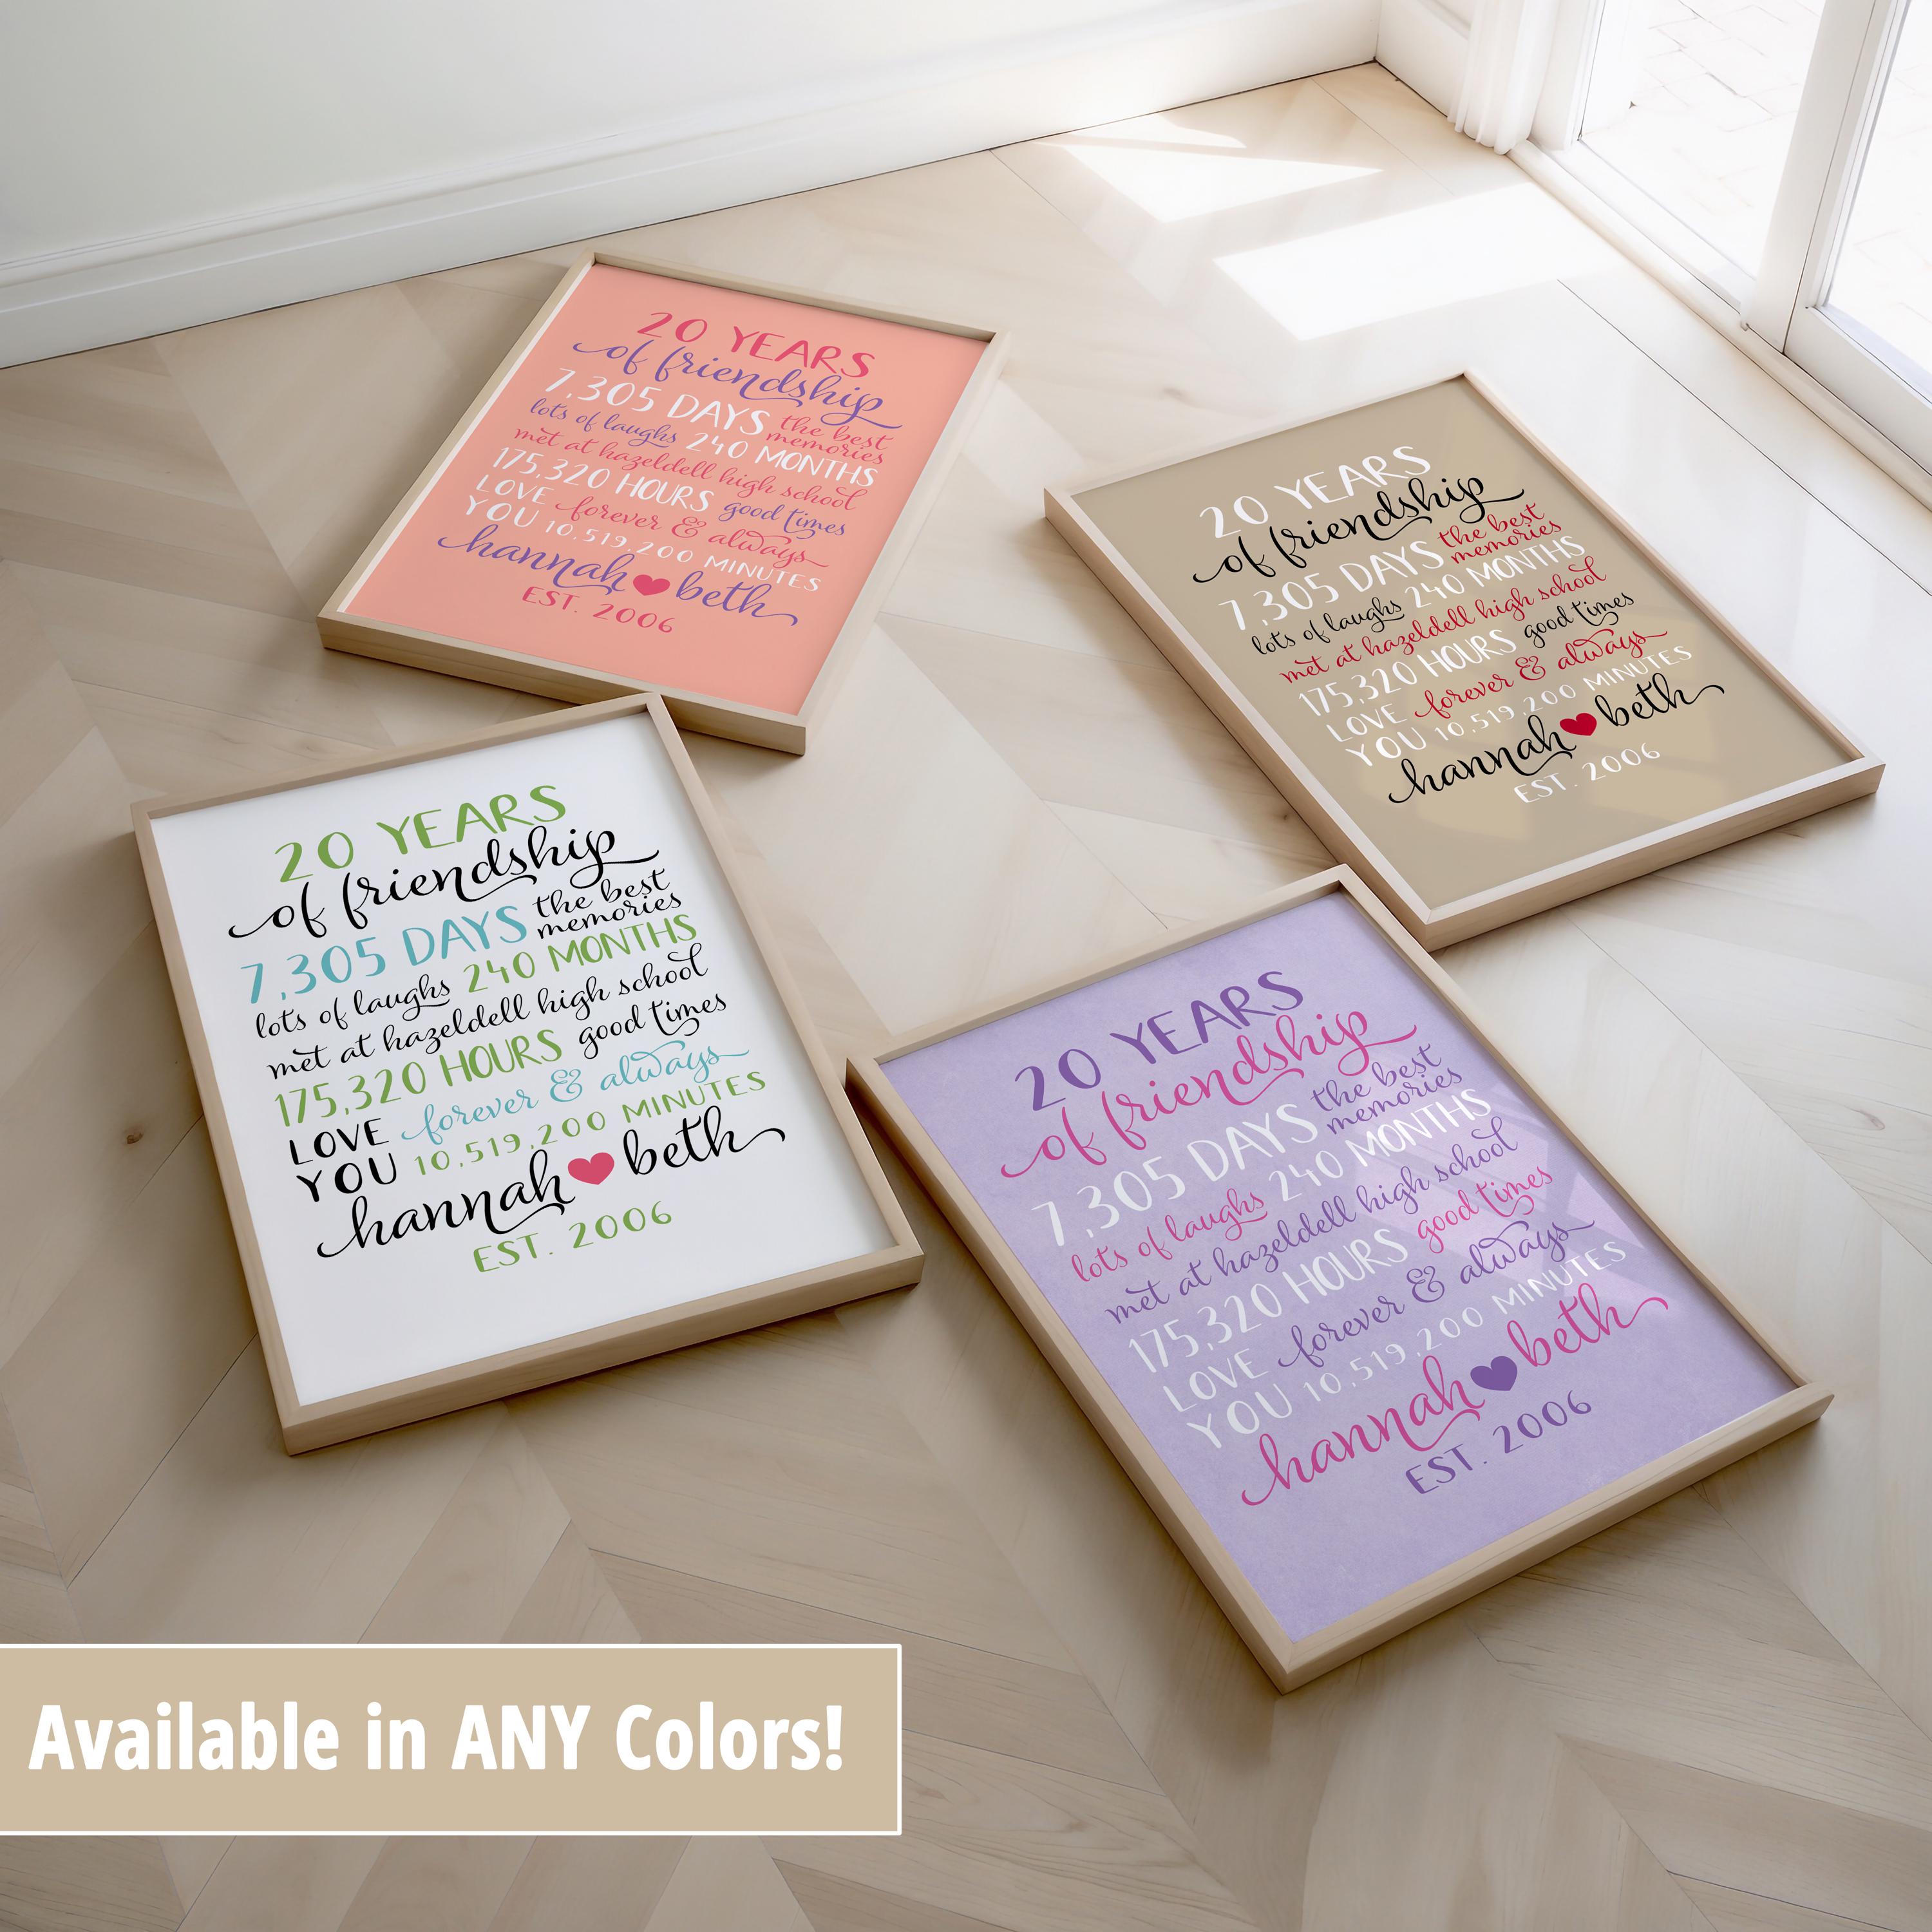 20 YEARS
of friendship
7,305 DAYS the best memories
lots of laughs 240 MONTHS
met at hazeldell high school
175,320 HOURS good times
LOVE forever & always
YOU 10,519,200 MINUTES
hannah beth
EST. 2006
20 YEARS
of friendship
7,305 DAYS the best memories
lots of laughs 240 MONTHS
met at hazeldell high school
175,320 HOURS good times
LOVE forever & always
YOU 10,519,200 MINUTES
hannah beth
EST. 2006
20 YEARS
of friendship
7,305 DAYS the best memories
lots of laughs 240 MONTHS
met at hazeldell high school
175,320 HOURS good times
LOVE forever & always
YOU 10,519,200 MINUTES
hannah beth
EST. 2006
20 YEARS
of friendship
7,305 DAYS the best memories
lots of laughs 240 MONTHS
met at hazeldell high school
175,320 HOURS good times
LOVE forever & always
YOU 10,519,200 MINUTES
hannah beth
EST. 2006
Available in ANY Colors!